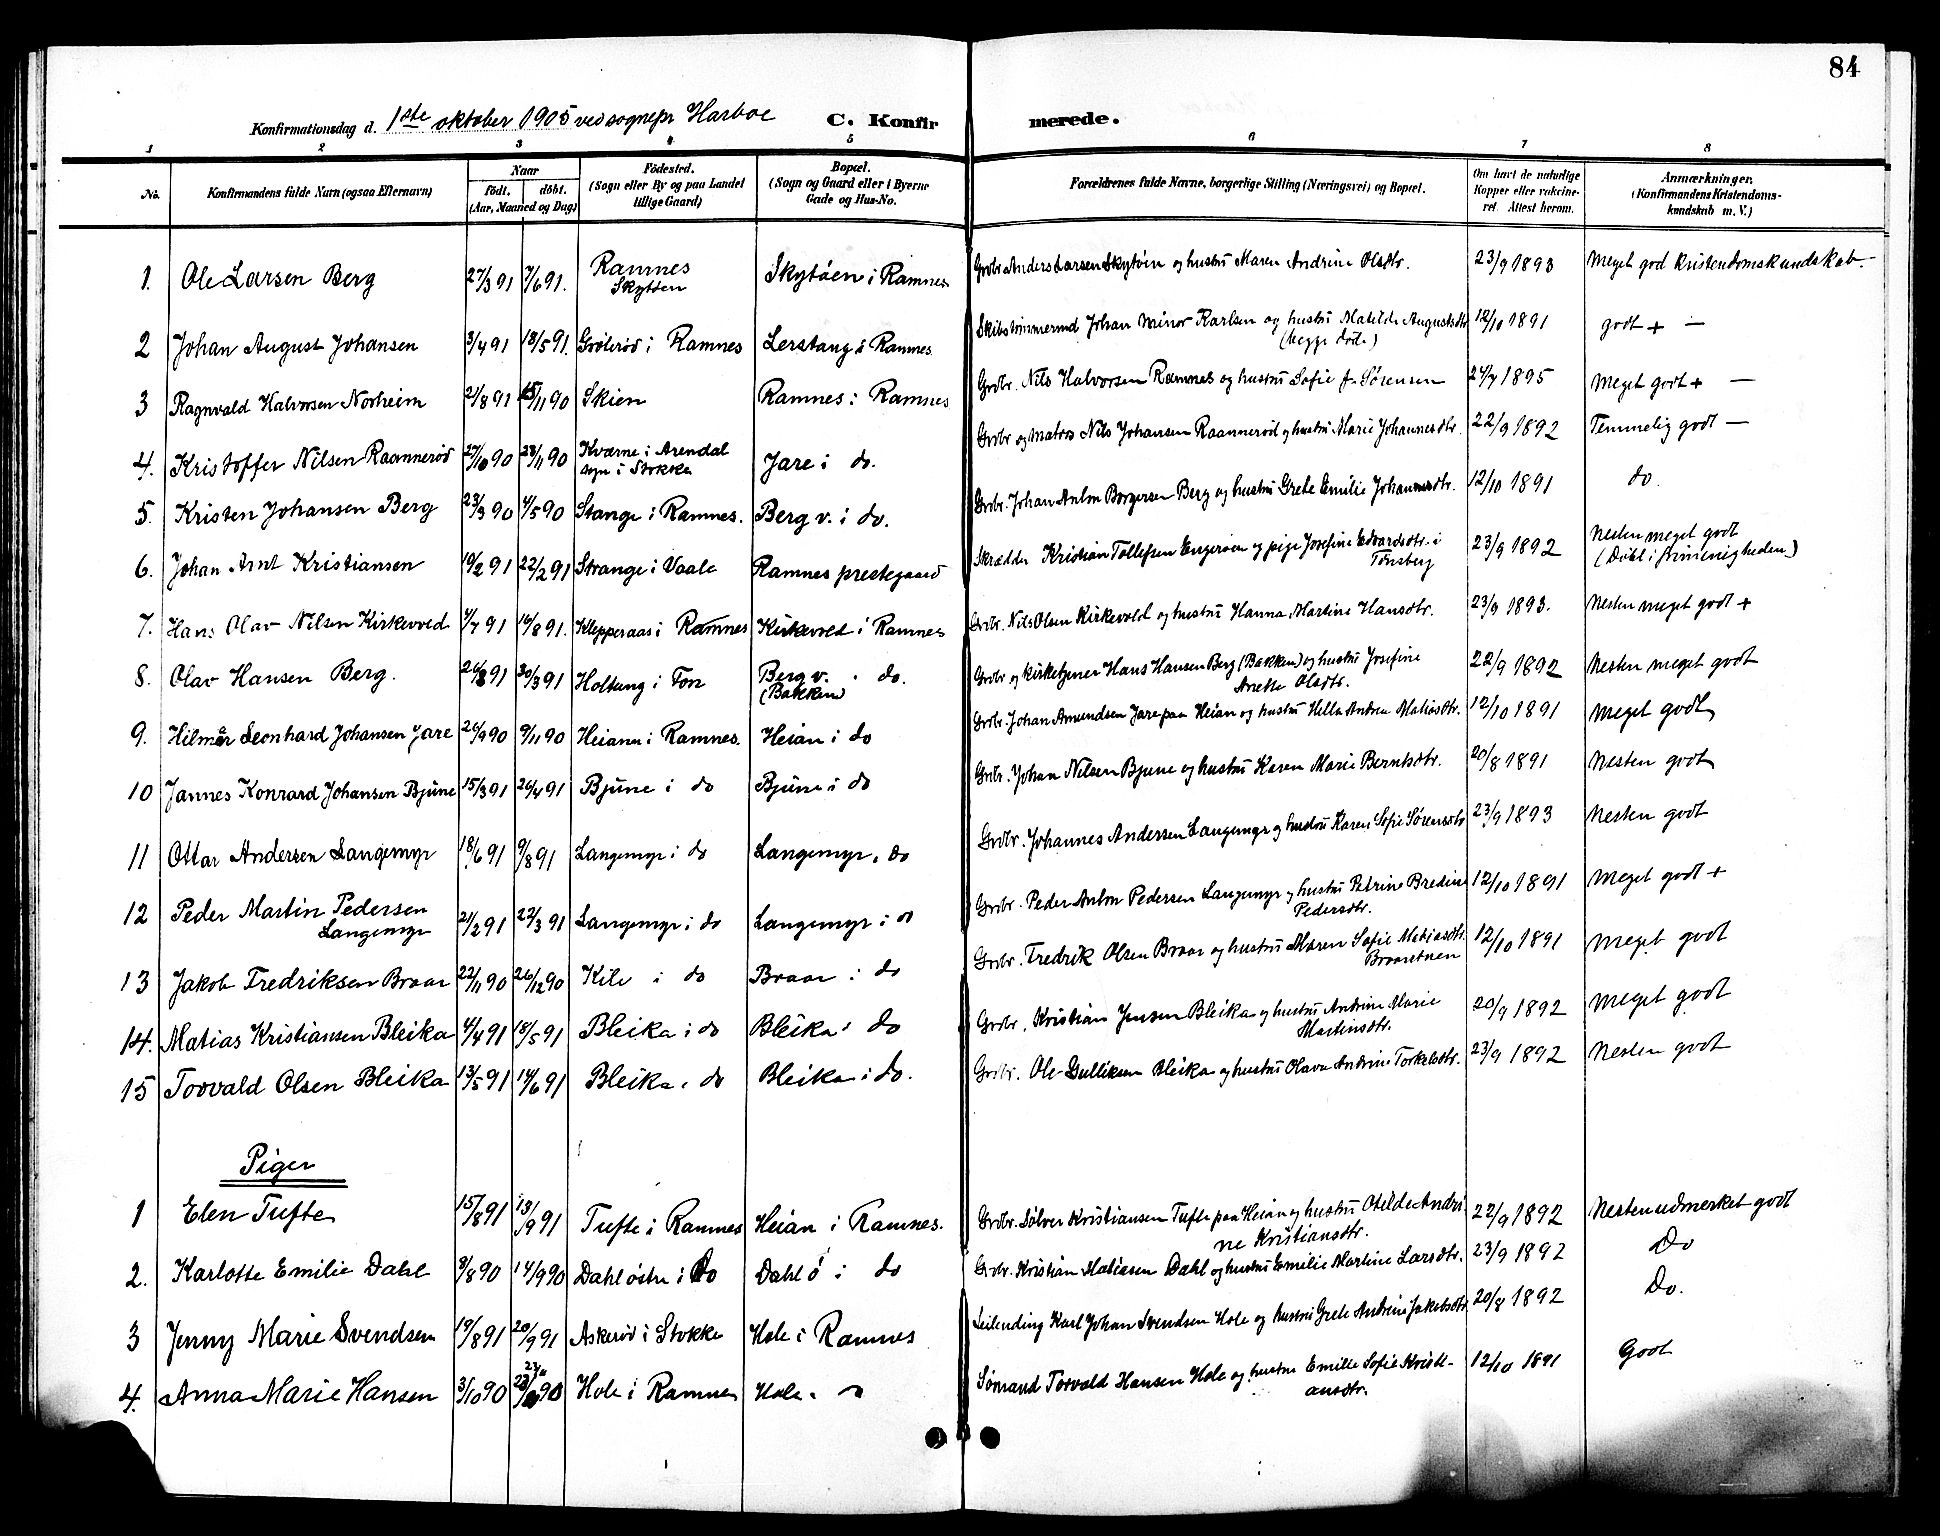 84
Konfirmationsdag d. 1ste oktober 1905 ved sognepr Harboe C. Konfirmerede.
1 2 3 4 5 6 7 8
No. Konfirmandens fulde Navn (ogsaa Efternavn) Naar født. døbt. (Aar, Maaned og Dag) Fødested. (Sogn eller By og paa Landet tillige Gaard) Bopæl. (Sogn og Gaard eller i Byerne Gade og Hus-No. Forældrenes fulde Navne, borgerlige Stilling (Næringsvei) og Bopæl. Om havt de naturlige Kopper eller vakcineret. Attest herom. Anmærkninger, (Konfirmandens Kristendomskundskab m. V.)
1. Ole Larsen Berg 27/3 91 7/6 91. Ramnes Skytøen Skytøen i Ramnes Grdbr Anders Larsen Skytøen og hustru Maren Andrine Olsdtr. 23/9 1893 Meget god Kristendomskundskab. —
2 Johan August Johansen 3/4 91 18/5 91. Grøterød i Ramnes Lerstang i Ramnes Skibstømmermd Johan Minor Karlsen og hustru Matilde Augustsdtr (begge døde) 12/10 1891 godt + —
3 Ragnvald Halvorsen Norheim 21/8 91 15/11 90 Skien Ramnes i Ramnes Grdbr. Nils Halvorsen Ramnes og hustru Sofie f. Sørensen 24/7 1895 Meget godt + —
4. Kristoffer Nilsen Raamerød 27/10 90 23/11 90 Kværne i Arendal sgn i Stokke Jare i do. Grdbr og matros Nils Johansen Raamerød og hustru Marie Johannesdtr. 22/9 1892 Temmelig godt —
5. Kristen Johansen Berg 23/3 90 4/5 90 Stange i Ramnes. Berg v. i do. Grdbr. Johan Anton Borgersen Berg og hustru Grete Emilie Johannesdtr. 12/10 1891 do.
6. Johan Arnt Kristiansen 19/2 91 22/2 91 Strange i Vaale Ramnes prestegaard Skrædder Kristian Tollefsen Engerøen og pige Josefine Edvardsdtr. i Tønsberg 23/9 1892 Nesten meget godt (Døbt i frimenigheden)
7. Hans Olav Nilsen Kirkevold 4/7 91 16/8 91. Klepperaas i Ramnes Kirkevold i Ramnes Grdbr. Nils Olsen Kirkevold og hustru Hanna Martine Hansdtr. 23/9 1893. Nesten meget godt +
8. Olav Hansen Berg. 30/3 91 Holtung i Fon Berg v. i do. (Bakken) Grdbr og kirketjener Hans Hansen Berg (Bakken) og hustru Josefine Anette Olsdtr. 22/9 1892 Nesten meget godt
9. Hilmar Leonhard Johansen Jare 26/9 90 9/11 90 Heian i Ramnes. Heian i do Grdbr. Johan Amundsen Jare paa Heian og hustru Hella Andrea Matiasdtr. 12/10 1891 Meget godt
10 Jannes Konrard Johansen Bjune 15/3 91 26/4 91 Bjune i do Bjune i do Grdbr. Johan Nilsen Bjune og hustru Karen Marie Berntsdtr. 20/8 1891 Nesten godt
11 Ottar Andersen Langemyr 18/6 91 9/8 91 Langemyr i do Langemyr i do Grdbr. Johannes Andersen Langemyr og hustru Karen Sofie Sørensdtr 23/9 1893 Nesten godt
12 Peder Martin Pedersen Langemyr 21/2 91 22/3 91 Langemyr i do Langemyr i do Grdbr. Peder Anton Pedersen Langemyr og hustru Petrine Bredine Pedersdtr. 12/10 1891 Meget godt +
13 Jakob Fredriksen Braar 22/11 90 26/12 90 Kile i do Braar i do Grdbr. Fredrik Olsen Braar og hustru Maren Sofie Matiasdtr Braaretuen 12/10 1891 Meget godt
14. Matias Kristiansen Bleika 4/4 91 18/5 91 Bleika i do Bleika i do Grdbr. Kristian Jensen Bleika og hustru Andrine Marie Martinsdtr. 20/9 1892 Meget godt
15 Torvald Olsen Bleika 13/5 91 14/6 91 Bleika i do Bleika i do. Grdbr. Ole Gulliksen Bleika og hustru Olava Andrine Torkelsdtr. 23/9 1892 Nesten godt
Piger
1 Elen Tufte 15/8 91 13/9 91 Tufte i Ramnes Heian i Ramnes. Grdbr. Sølver Kristiansen Tufte paa Heian og hustru Otelde Andrine Kristiansdtr. 22/9 1892 Nesten udmerket godt
2. Karlotte Emilie Dahl 9/8 90 14/9 90 Dahl østre i Do Dahl ø i do Grdbr. Kristian Matiasen Dahl og hustru Emilie Martine Larsdtr. 23/9 1892 Do
3 Jenny Marie Svendsen 19/8 91 20/9 91 Askerød i Stokke Hole i Ramnes Leilending Karl Johan Svendsen Hole og hustru Grete Andrine Jakobsdtr 20/8 1892 Do.
4. Anna Marie Hansen 3/10 90 Hole i Ramnes Hole i do Sømand Torvald Hansen Hole og hustru Emilie Sofie Kristiansdtr. 12/10 1891 Godt